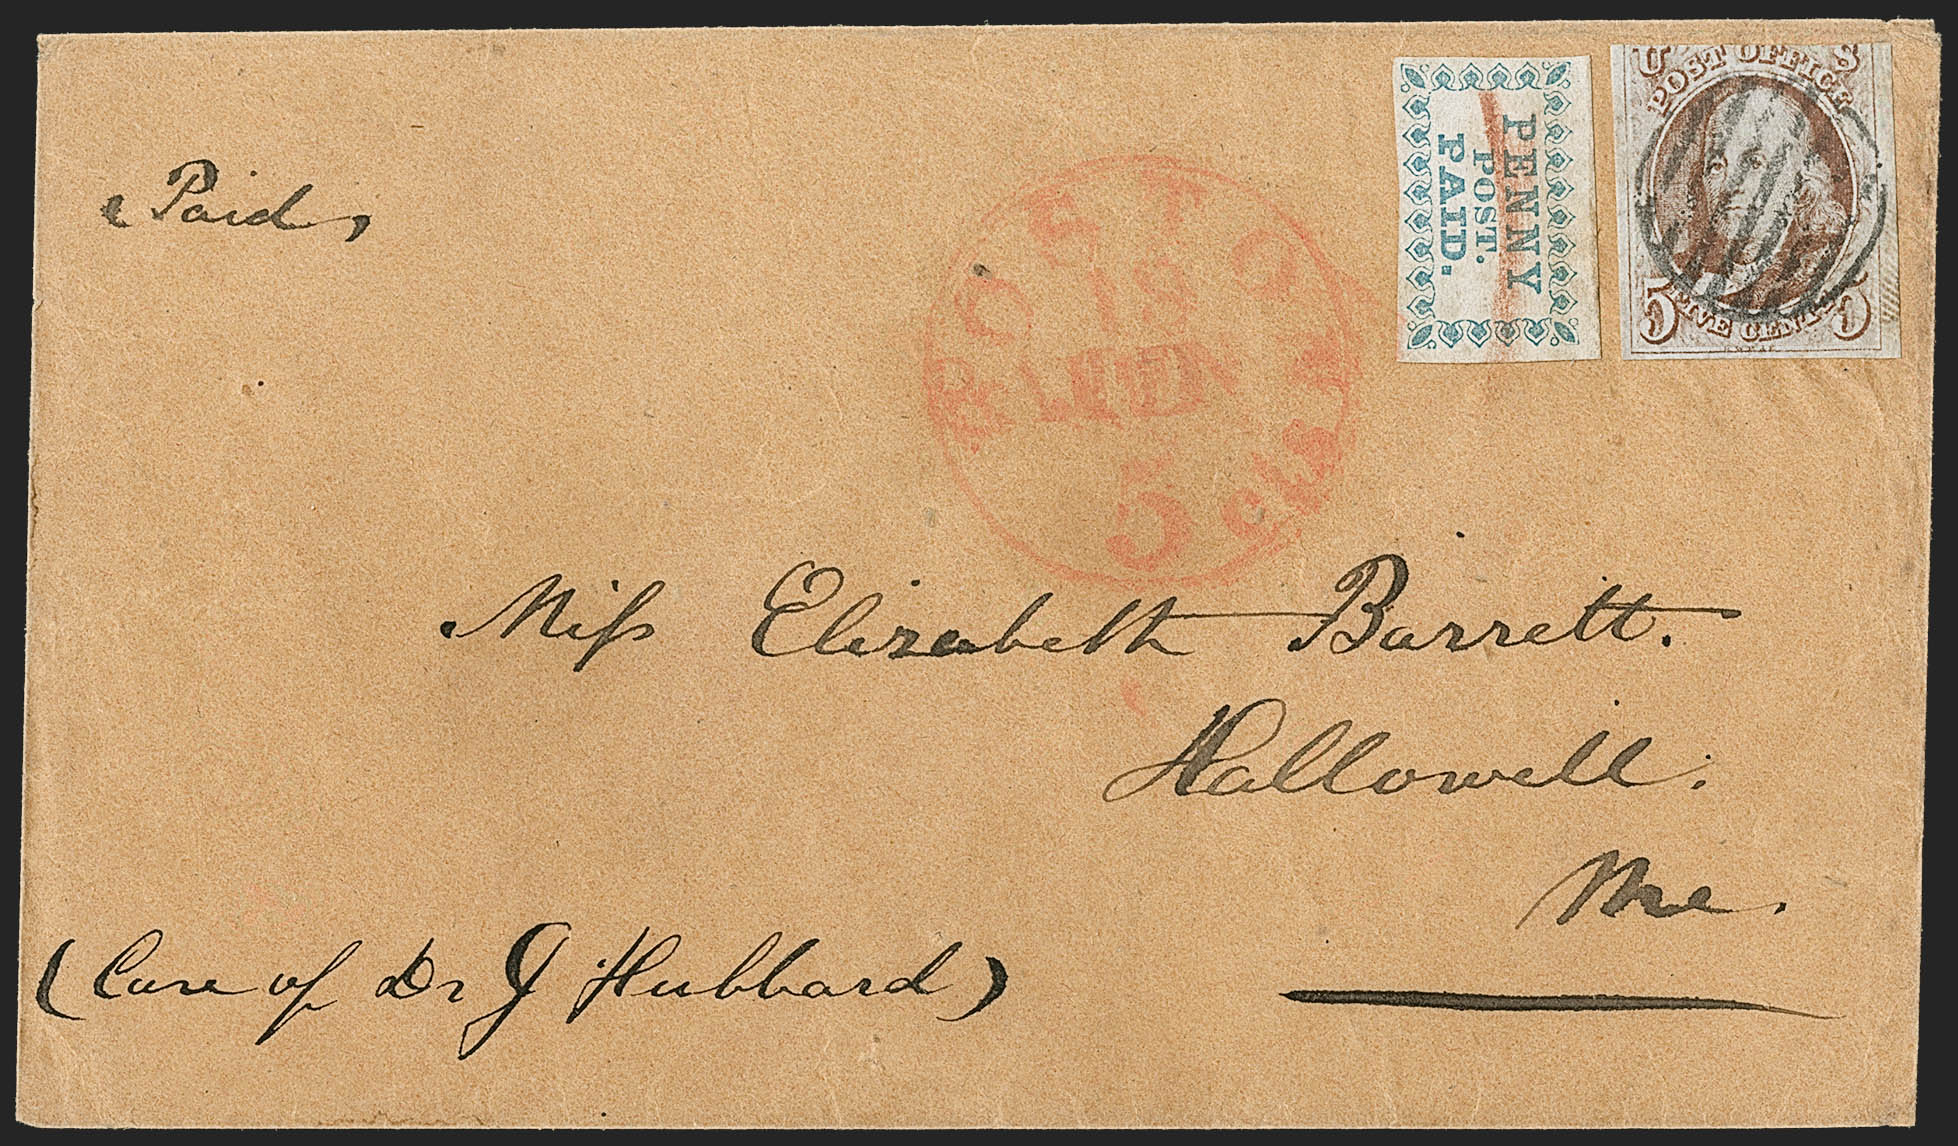 Paid
PENNY
POST.
PAID.
U S
POST OFFICE
5 FIVE CENTS 5
BOSTON
18
5 cts
Miss Elizabeth Barrett.
Hallowell.
Me.
(Care of Dr J Hubbard)